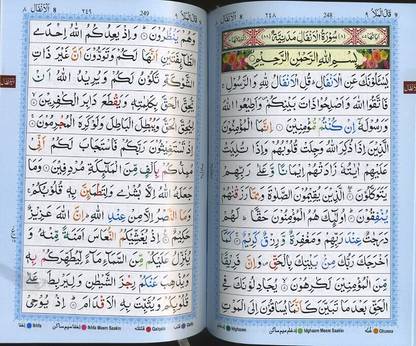 قَالَ الْمَلَاُ ٩
248
٢٤٨
اَلْاَنْفَال ٨
سُوْرَةُ الْاَنْفَالِ مَدَنِيَّةٌ
بِسْمِ اللّٰهِ الرَّحْمٰنِ الرَّحِيْمِ
يَسْـَٔلُوْنَكَ عَنِ الْاَنْفَالِ قُلِ الْاَنْفَالُ لِلّٰهِ وَالرَّسُوْلِ
فَاتَّقُوا اللّٰهَ وَاَصْلِحُوْا ذَاتَ بَيْنِكُمْ وَاَطِيْعُوا اللّٰهَ
وَرَسُوْلَهٗۤ اِنْ كُنْتُمْ مُّؤْمِنِيْنَ اِنَّمَا الْمُؤْمِنُوْنَ
الَّذِيْنَ اِذَا ذُكِرَ اللّٰهُ وَجِلَتْ قُلُوْبُهُمْ وَاِذَا تُلِيَتْ
عَلَيْهِمْ اٰيٰتُهٗ زَادَتْهُمْ اِيْمَانًا وَّعَلٰى رَبِّهِمْ
يَتَوَكَّلُوْنَ الَّذِيْنَ يُقِيْمُوْنَ الصَّلٰوةَ وَمِمَّا رَزَقْنٰهُمْ
يُنْفِقُوْنَ اُولٰٓئِكَ هُمُ الْمُؤْمِنُوْنَ حَقًّا لَهُمْ
دَرَجٰتٌ عِنْدَ رَبِّهِمْ وَمَغْفِرَةٌ وَّرِزْقٌ كَرِيْمٌ كَمَاۤ
اَخْرَجَكَ رَبُّكَ مِنْۢ بَيْتِكَ بِالْحَقِّ وَاِنَّ فَرِيْقًا
مِّنَ الْمُؤْمِنِيْنَ لَكٰرِهُوْنَ يُجَادِلُوْنَكَ فِي
الْحَقِّ بَعْدَ مَا تَبَيَّنَ كَاَنَّمَا يُسَاقُوْنَ اِلَى الْمَوْتِ
Ghunna
Idgham Meem Saakin
Idghaam
قَالَ الْمَلَاُ ٩
249
٢٤٩
اَلْاَنْفَال ٨
وَهُمْ يَنْظُرُوْنَ وَاِذْ يَعِدُكُمُ اللّٰهُ اِحْدَى
الطَّآئِفَتَيْنِ اَنَّهَا لَكُمْ وَتَوَدُّوْنَ اَنَّ غَيْرَ ذَاتِ
الشَّوْكَةِ تَكُوْنُ لَكُمْ وَيُرِيْدُ اللّٰهُ اَنْ
يُّحِقَّ الْحَقَّ بِكَلِمٰتِهٖ وَيَقْطَعَ دَابِرَ الْكٰفِرِيْنَ
لِيُحِقَّ الْحَقَّ وَيُبْطِلَ الْبَاطِلَ وَلَوْ كَرِهَ الْمُجْرِمُوْنَ
اِذْ تَسْتَغِيْثُوْنَ رَبَّكُمْ فَاسْتَجَابَ لَكُمْ اَنِّيْ
مُمِدُّكُمْ بِاَلْفٍ مِّنَ الْمَلٰٓئِكَةِ مُرْدِفِيْنَ وَمَا
جَعَلَهُ اللّٰهُ اِلَّا بُشْرٰى وَلِتَطْمَئِنَّ بِهٖ قُلُوْبُكُمْ
وَمَا النَّصْرُ اِلَّا مِنْ عِنْدِ اللّٰهِ اِنَّ اللّٰهَ عَزِيْزٌ
حَكِيْمٌ اِذْ يُغَشِّيْكُمُ النُّعَاسَ اَمَنَةً مِّنْهُ وَ
يُنَزِّلُ عَلَيْكُمْ مِّنَ السَّمَآءِ مَآءً لِّيُطَهِّرَكُمْ بِهٖ
وَيُذْهِبَ عَنْكُمْ رِجْزَ الشَّيْطٰنِ وَلِيَرْبِطَ عَلٰى
قُلُوْبِكُمْ وَيُثَبِّتَ بِهِ الْاَقْدَامَ اِذْ يُوْحِيْ
Qalb
Qalqala
Ikhfa Meem Saakin
Ikhfa